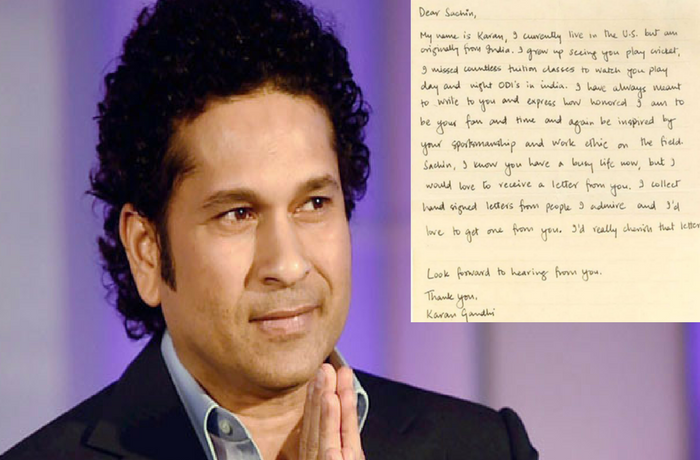 Dear Sachin,
My name is Karan, I currently live in the U.S. but am
originally from India. I grew up seeing you play cricket,
I missed countless tuition classes to watch you play
day and night ODI's in india. I have always meant
to write to you and express how honored I am to
be your fan and time and again be inspired by
your sportsmanship and work ethic on the field
Sachin, I know you have a busy life now, but I
would love to receive a letter from you. I collect
hand signed letters from people I admire and I'd
love to get one from you. I'd really cherish that letter
Look forward to hearing from you.
Thank you,
Karan Gandhi